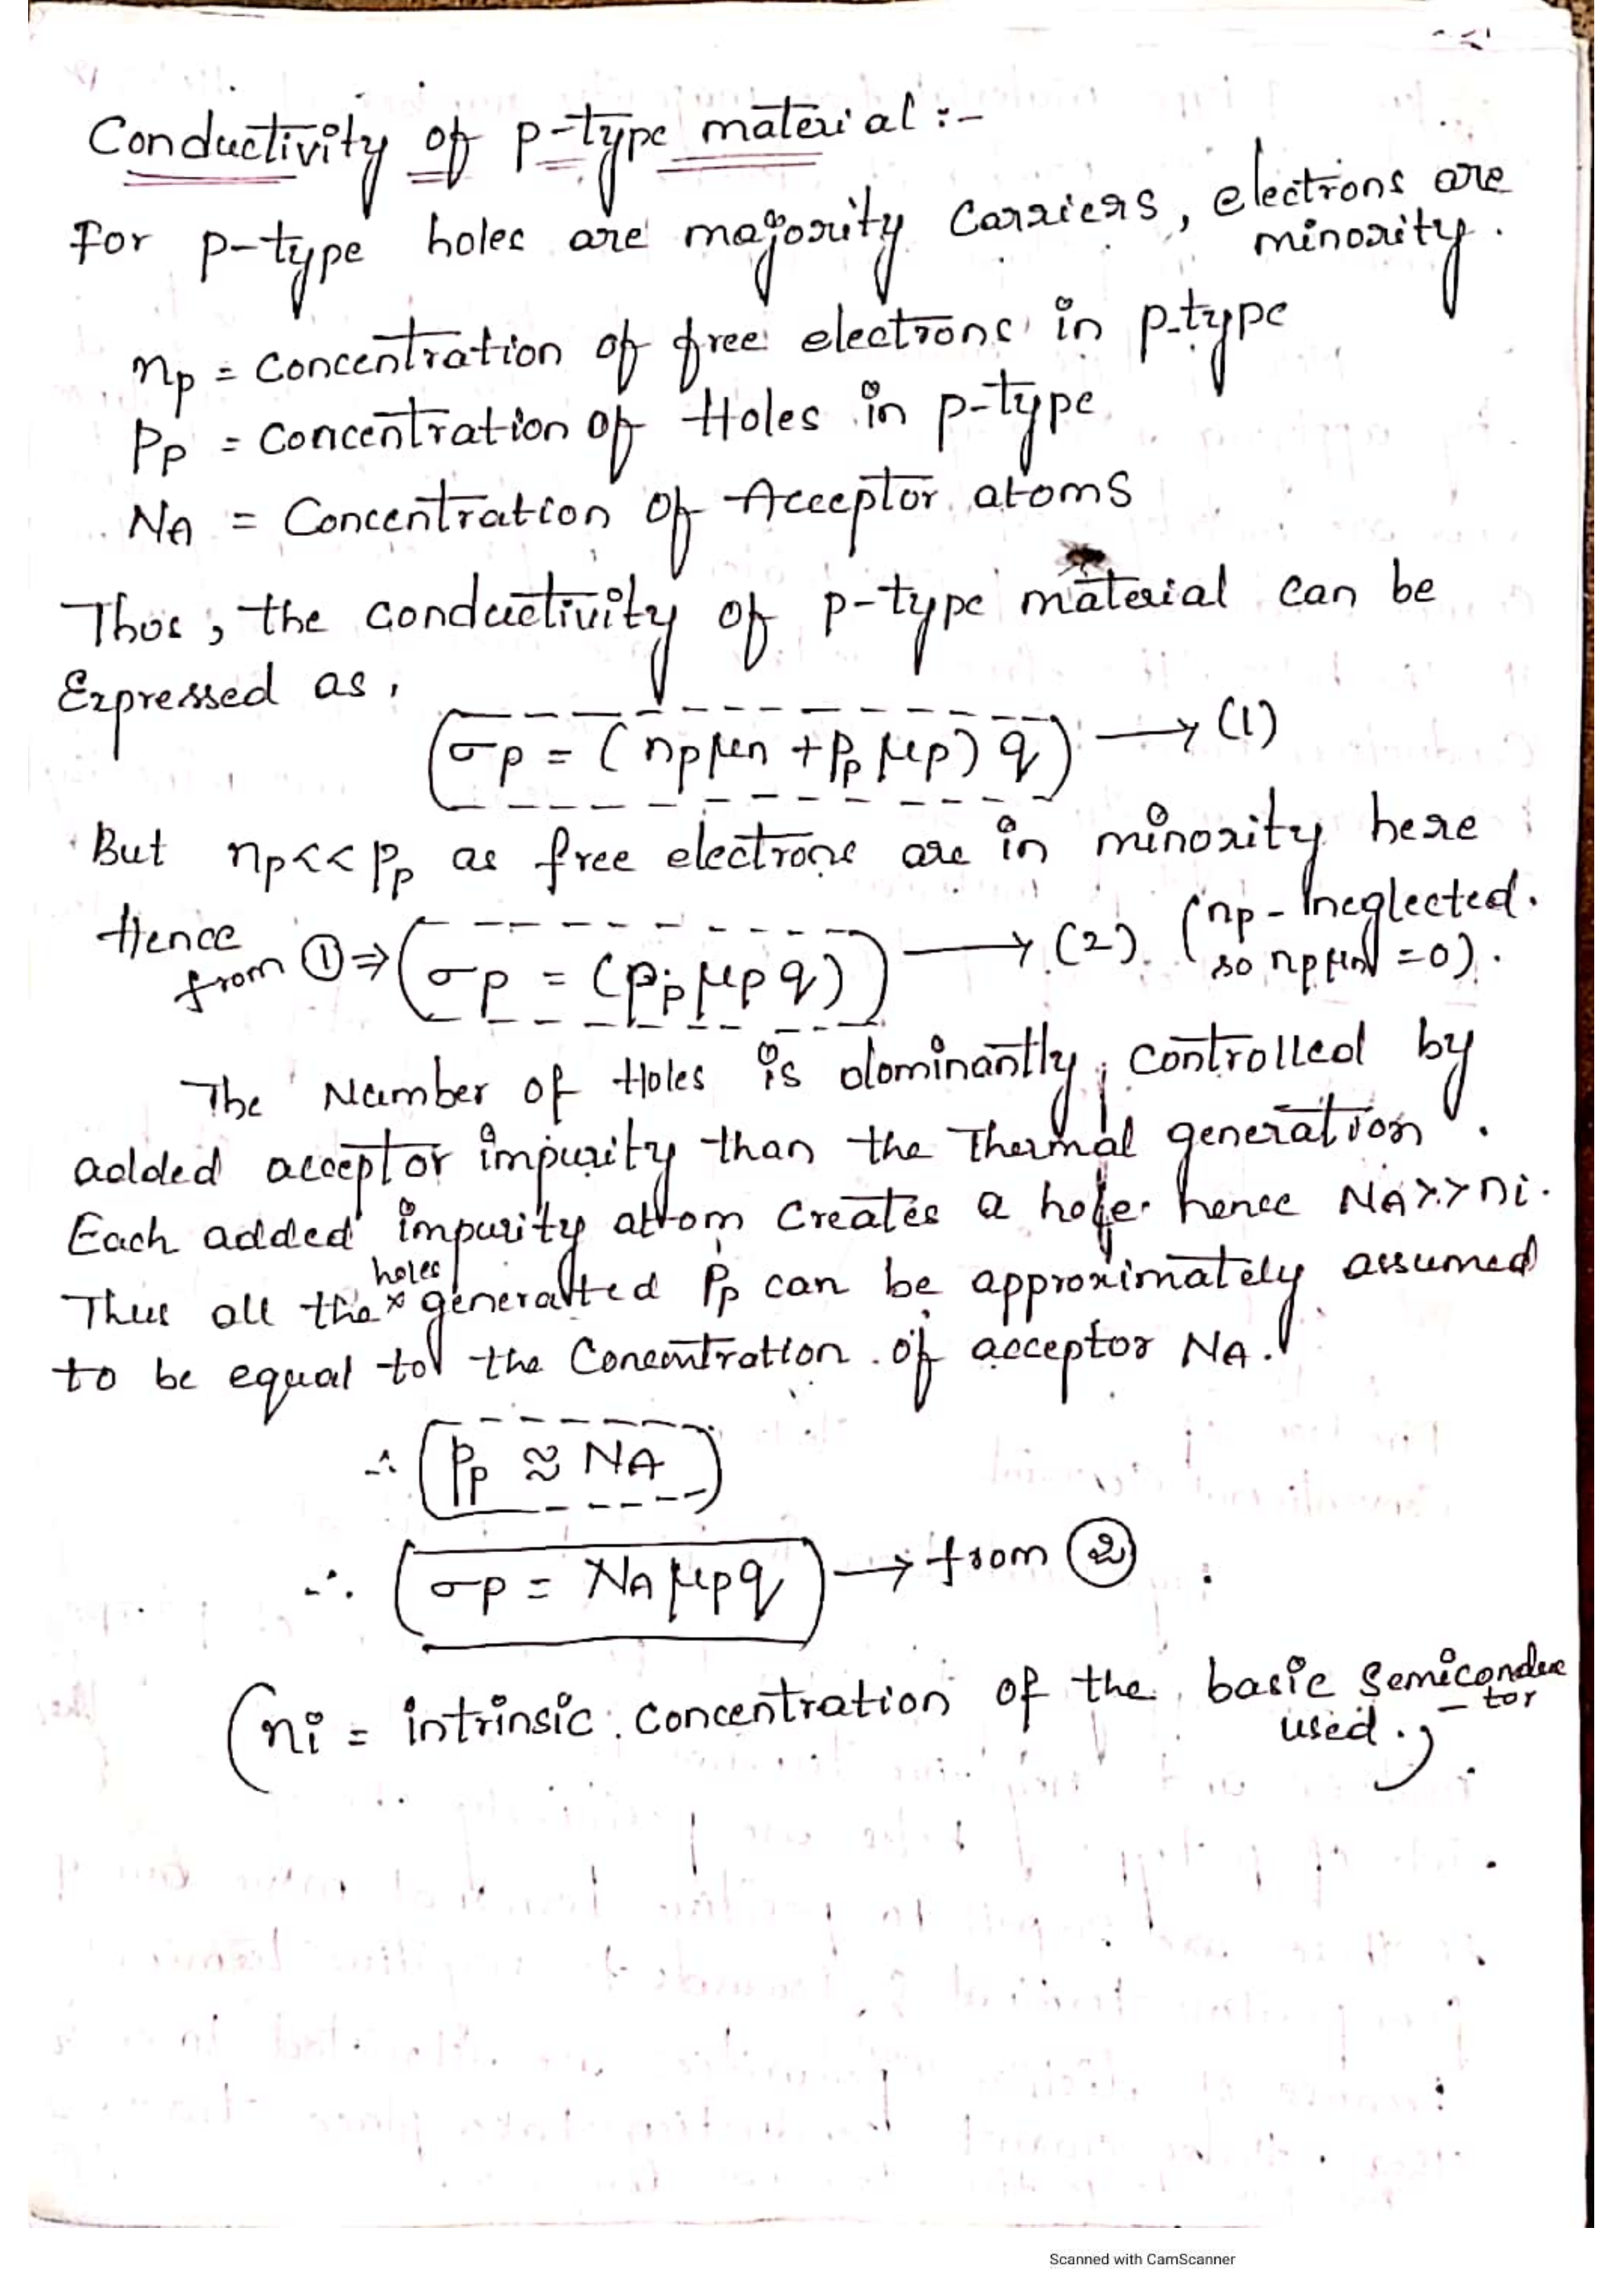 Conductivity of p-type material :-
For p-type holes are majority carriers, electrons are
minority.
np = concentration of free electrons in p-type
Pp = concentration of Holes in p-type
NA = Concentration of Acceptor atoms
Thus, the conductivity of p-type material can be
Expressed as,
σp = (npμn + Pp μp) q → (1)
But np<<Pp as free electrons are in minority here
Hence
from ① ⇒ σp = (Pp μp q) → (2). (np - Ineglected.
so np μn = 0).
The Number of Holes is dominantly, controlled by
added acceptor impurity than the Thermal generation.
Each added impurity atom creates a hole. hence NA>>ni.
holes
Thus all the x generatted Pp can be approximately assumed
to be equal to the Concentration of acceptor NA.
∴ Pp ≈ NA
∴ σp = NA μp q → from ②
(ni = intrinsic concentration of the basic Semiconduc
-tor
used.)
Scanned with CamScanner